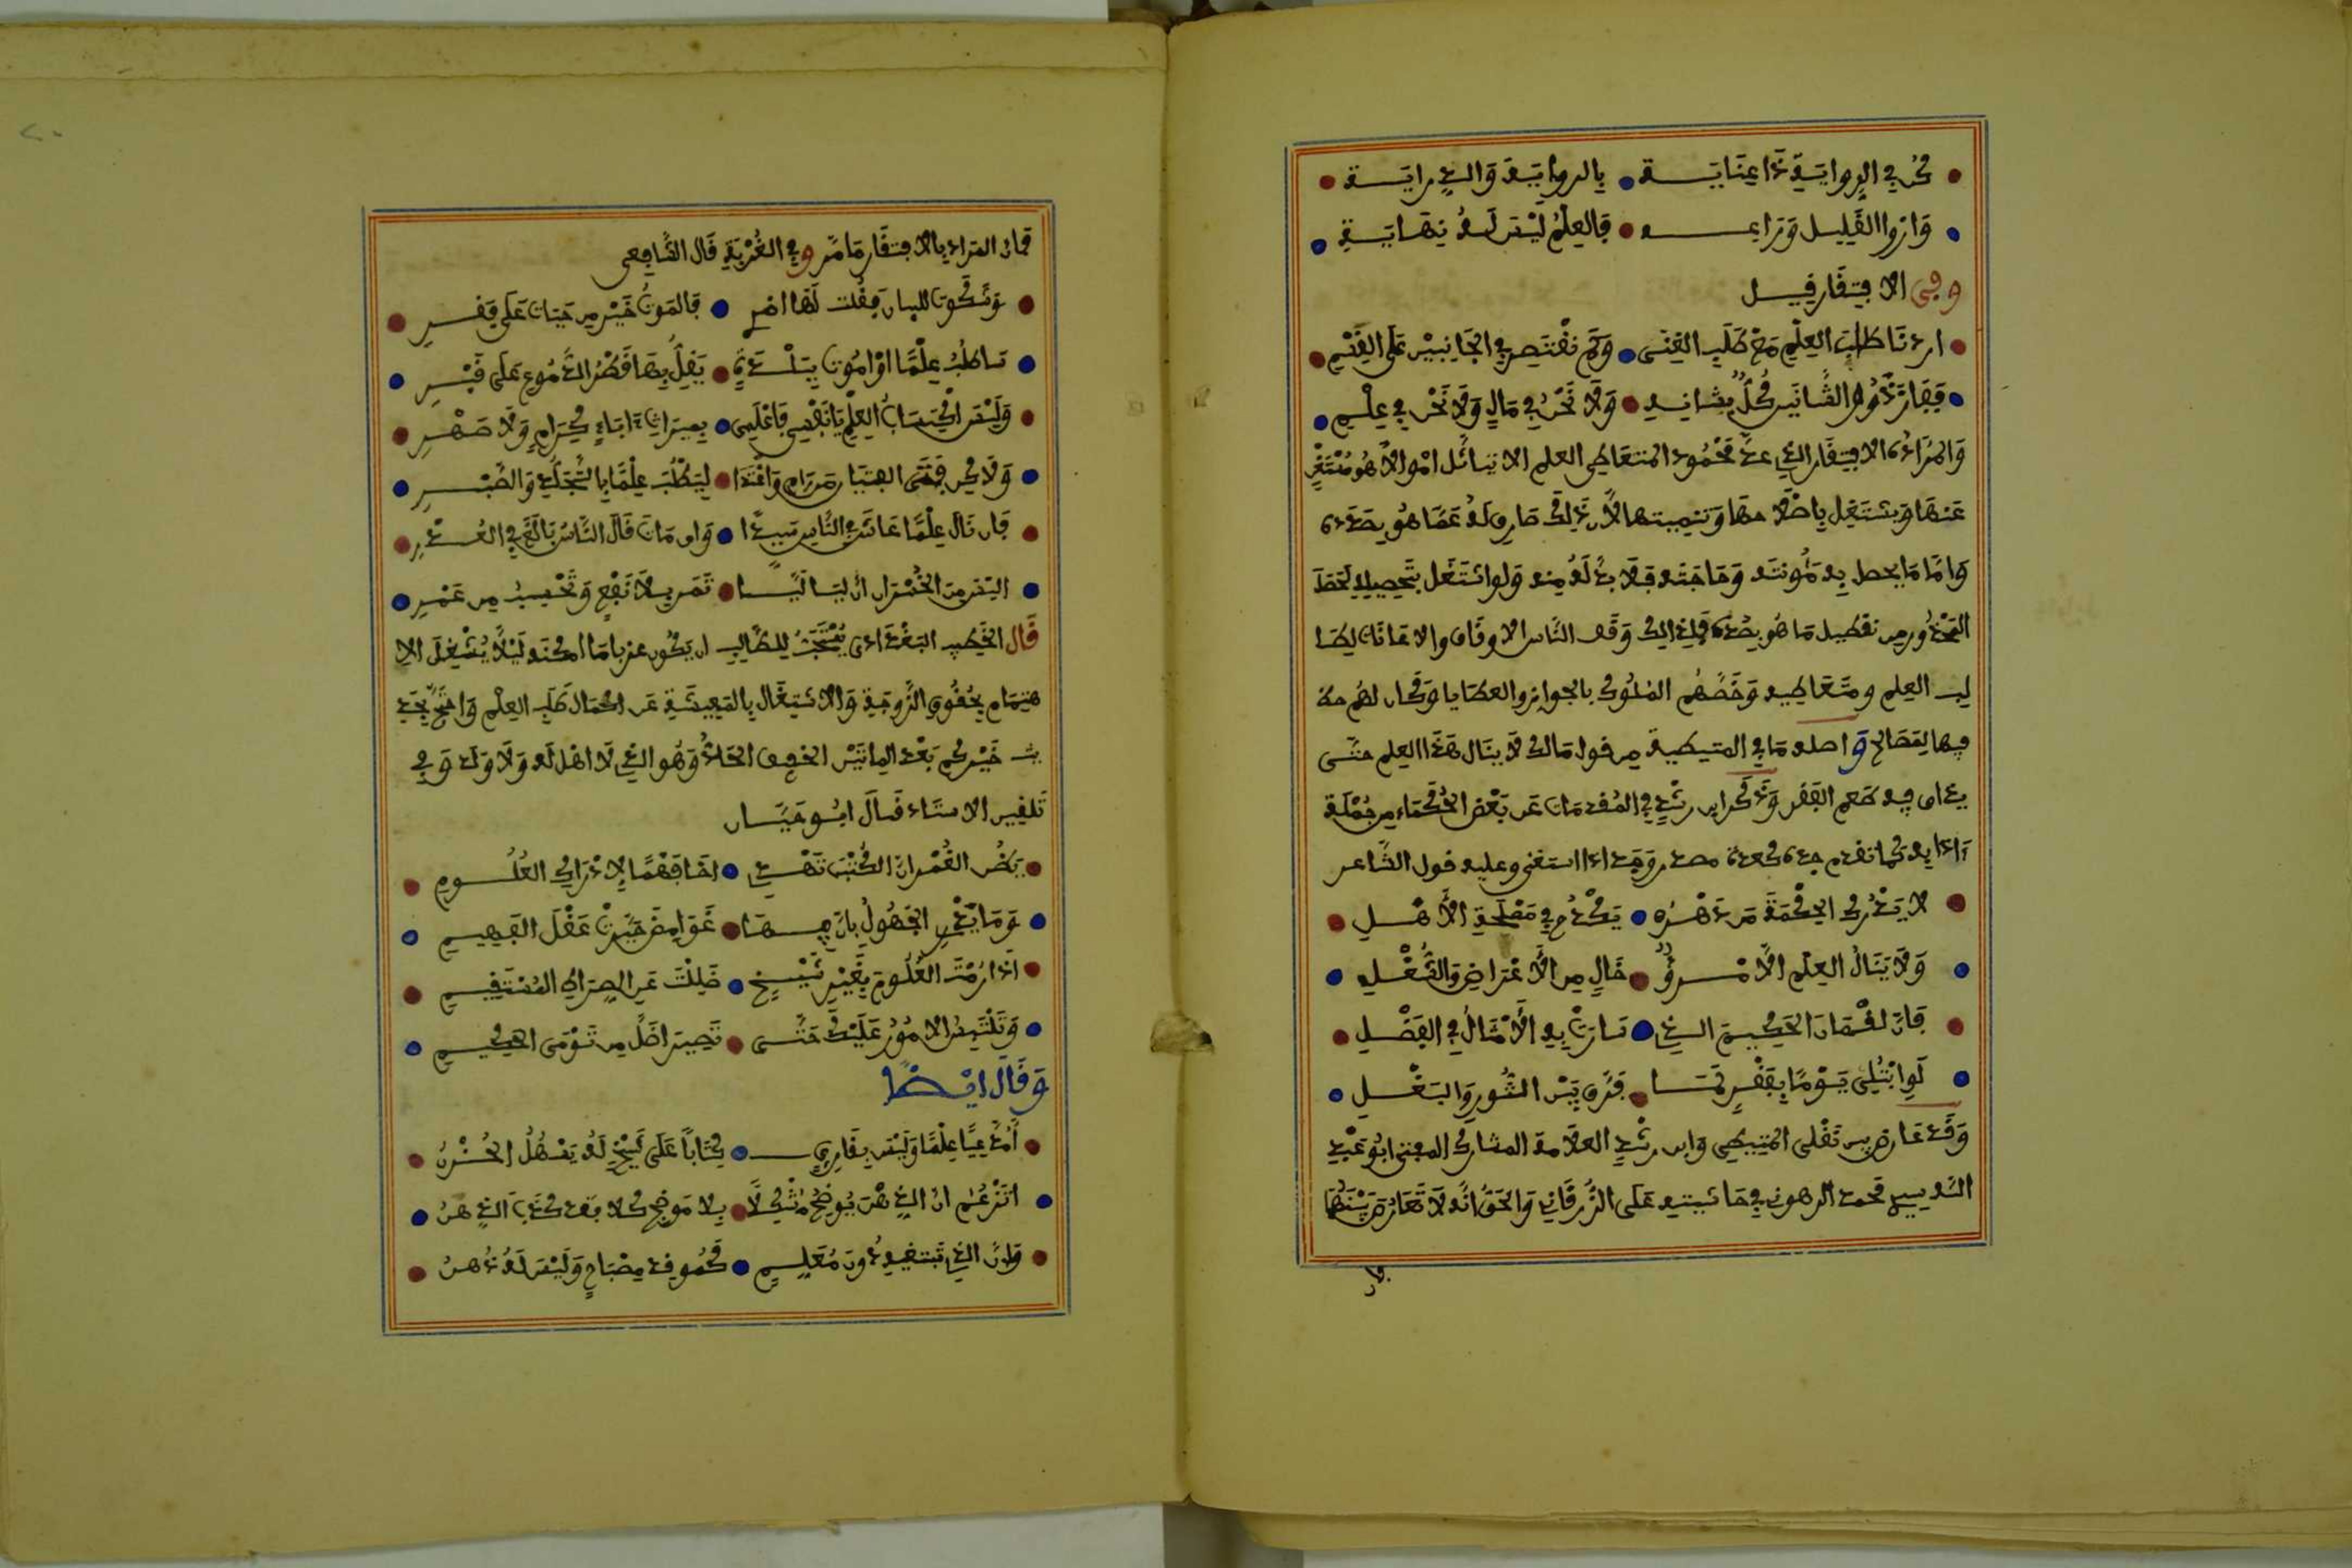 كن في الرواية ذا عناية بالرواية والدراية
وارو القليل وراعه فالعلم ليس له نهاية
وفي الافتقار قيل
اردنا طلب العلم مع طلب الغنى ولم نقتصر في الجانبين على القسم
ففاز ذووا الشانين كل بشانه ولا نحن في مال ولا نحن في علم
والمراد بالافتقار الذي عد محمود المتعاطي العلم الا تسائل اموالا هو مستغن
عنها ويشتغل باصلاحها وتنميتها لان ذلك صارف له عما هو بصدده
واما ما يحصل به مئونته وحاجته فلا بد له منه ولو اشتغل بتحصيله لحصل
المحذور من تعطيل ما هو بصدده فلذلك وقف الناس الاوقاف والاعانات لطا
لب العلم ومتعاطيه وخصهم الملوك بالجوائز والعطايا وكان لهم حظ
فيها لمصالح واصله ما في المتيطية من قول مالك لا ينال هذا العلم حتى
يذاق فيه طعم الفقر وذكر ابن رشد في المقدمات عن بعض الحكماء من جملة
ءادابه كما تقدم اذا استغنى وعليه قول الشاعر
لا يدرك الحكمة من دهره يكدح في مصلحة الاهل
ولا ينال العلم الا مرؤ خال من الاغراض والشغل
فان لقمان الحكيم الذي سارت به الامثال في الفضل
لو ابتلي يوما بفقر لما فرق بين الثور والبغل
وقد عارض بين نقلي المتيطي وابن رشد العلامة المشارك المعتني ابو عبد
الله سيدي محمد الرهوني في حاشيته على الزرقاني والحق انه لا تعارض بينهما
فان
فان المراد بالافتقار ما مر وفي الغربة قال الشافعي
فقلت لها اصبر فالموت خير من حيات على فقر
ساطلب علما او اموت ببلدة يقل بها قطر الدموع على قبر
وليس اكتساب العلم يا نفسي فاعلمي بميراث ءاباء كرام ولا صهر
ولاكن فتى الفتيان من رام واغتدا ليطلب علما بالتجلد والصبر
فان نال علما عاش في الناس سيدا وان مات قال الناس بالغ في العذر
اليس من الخسران ان لياليا تمر بلا نفع وتحسب من عمر
قال الخطيب البغدادي يستحب للطالب ان يكون عزبا ما امكنه ليلا يشغل الا
هتمام بحقوق الزوجية والاشتغال بالمعيشة عن اكمال طلب العلم واحتج بحد
يث خيركم بعد المائتين الخفيف الحاذ وهو الذي لا اهل له ولا ولد وفي
تلقين الاستاد قال ابو حيان
يظن الغمر ان الكتب تهدي اخا فهم لادراك العلوم
وما يدري الجهول بان فيها غوامض حيرت عقل الفهيم
اذا رمت العلوم بغير شيخ ضللت عن الصراط المستقيم
وتلتبس الامور عليك حتى تصير اضل من توما الحكيم
وقال ايضا
أمدعيا علما وليس بقارئ كتابا على شيخ له يسهل الحزن
اتزعم ان الذهن يوضح مشكلا بلا موضح كلا لقد كذب الذهن
وان الذي تبتغيه دون معلم كموقد مصباح وليس له دهن